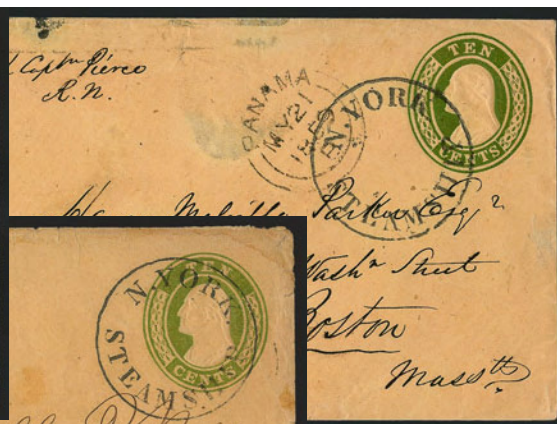 Captn Pierce
R.N.
PANAMA
MY 21
N.YORK
STEAMSH
TEN
CENTS
Melville Parker Esqr
Washn Street
Boston
Massts
N.YORK
STEAMSHIP
TEN
CENTS